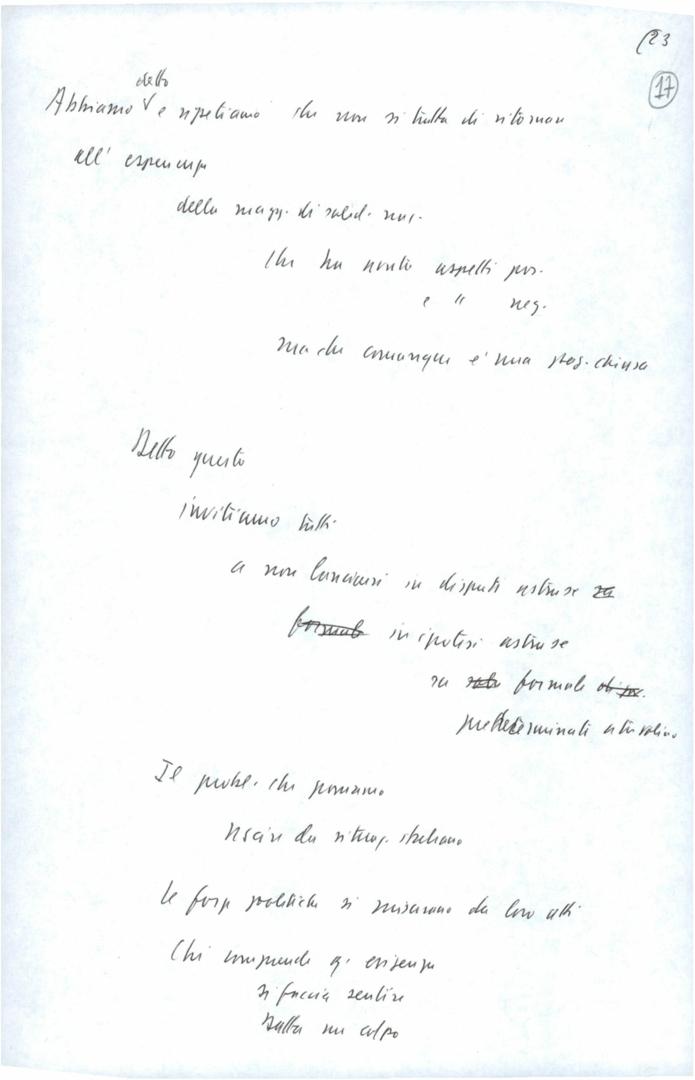 (23
17
detto
Abbiamo V e ripetiamo che non si tratta di ritornare
all' esperienza
della magg. di solid. naz.
che ha avuto aspetti pos.
e " neg.
ma che comunque e' una stag. chiusa
Detto questo
invitiamo tutti
a non lanciarsi in dispute astruse su
formule in ipotesi astruse
su formule
predeterminate
Il probl. che poniamo
uscire da situaz. italiana
Le forze politiche si misurano da loro atti
Chi comprende q. esigenza
si faccia sentire
Batta un colpo